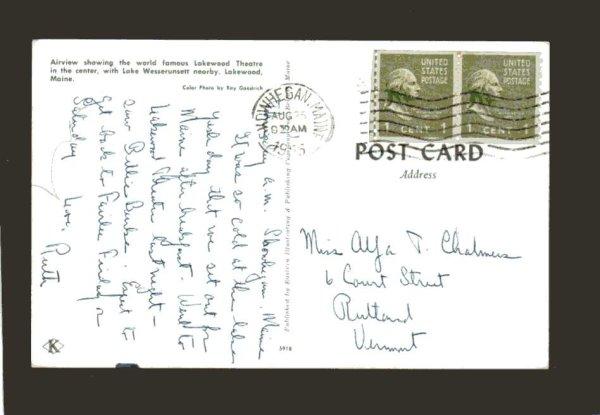 Airview showing the world famous Lakewood Theatre
in the center, with Lake Wesserunsett nearby, Lakewood,
Maine.
Color Photo by Roy Goodrich
a.m. Skowhegan, Maine
It was so cold at the lake
yesterday that we set out for
Maine after breakfast. Went to
Lakewood Theater last night -
saw Billie Burke. Expect to
get back to Fairlee Friday or
Saturday
Love, Ruth
K
Published by Eastern Illustrating & Publishing Maine
5918
SKOWHEGAN, MAINE
AUG 25
AM
UNITED
STATES
POSTAGE
1 CENT 1
UNITED
STATES
POSTAGE
1 CENT 1
POST CARD
Address
Miss Alfa T. Chalmers
6 Court Street
Rutland
Vermont